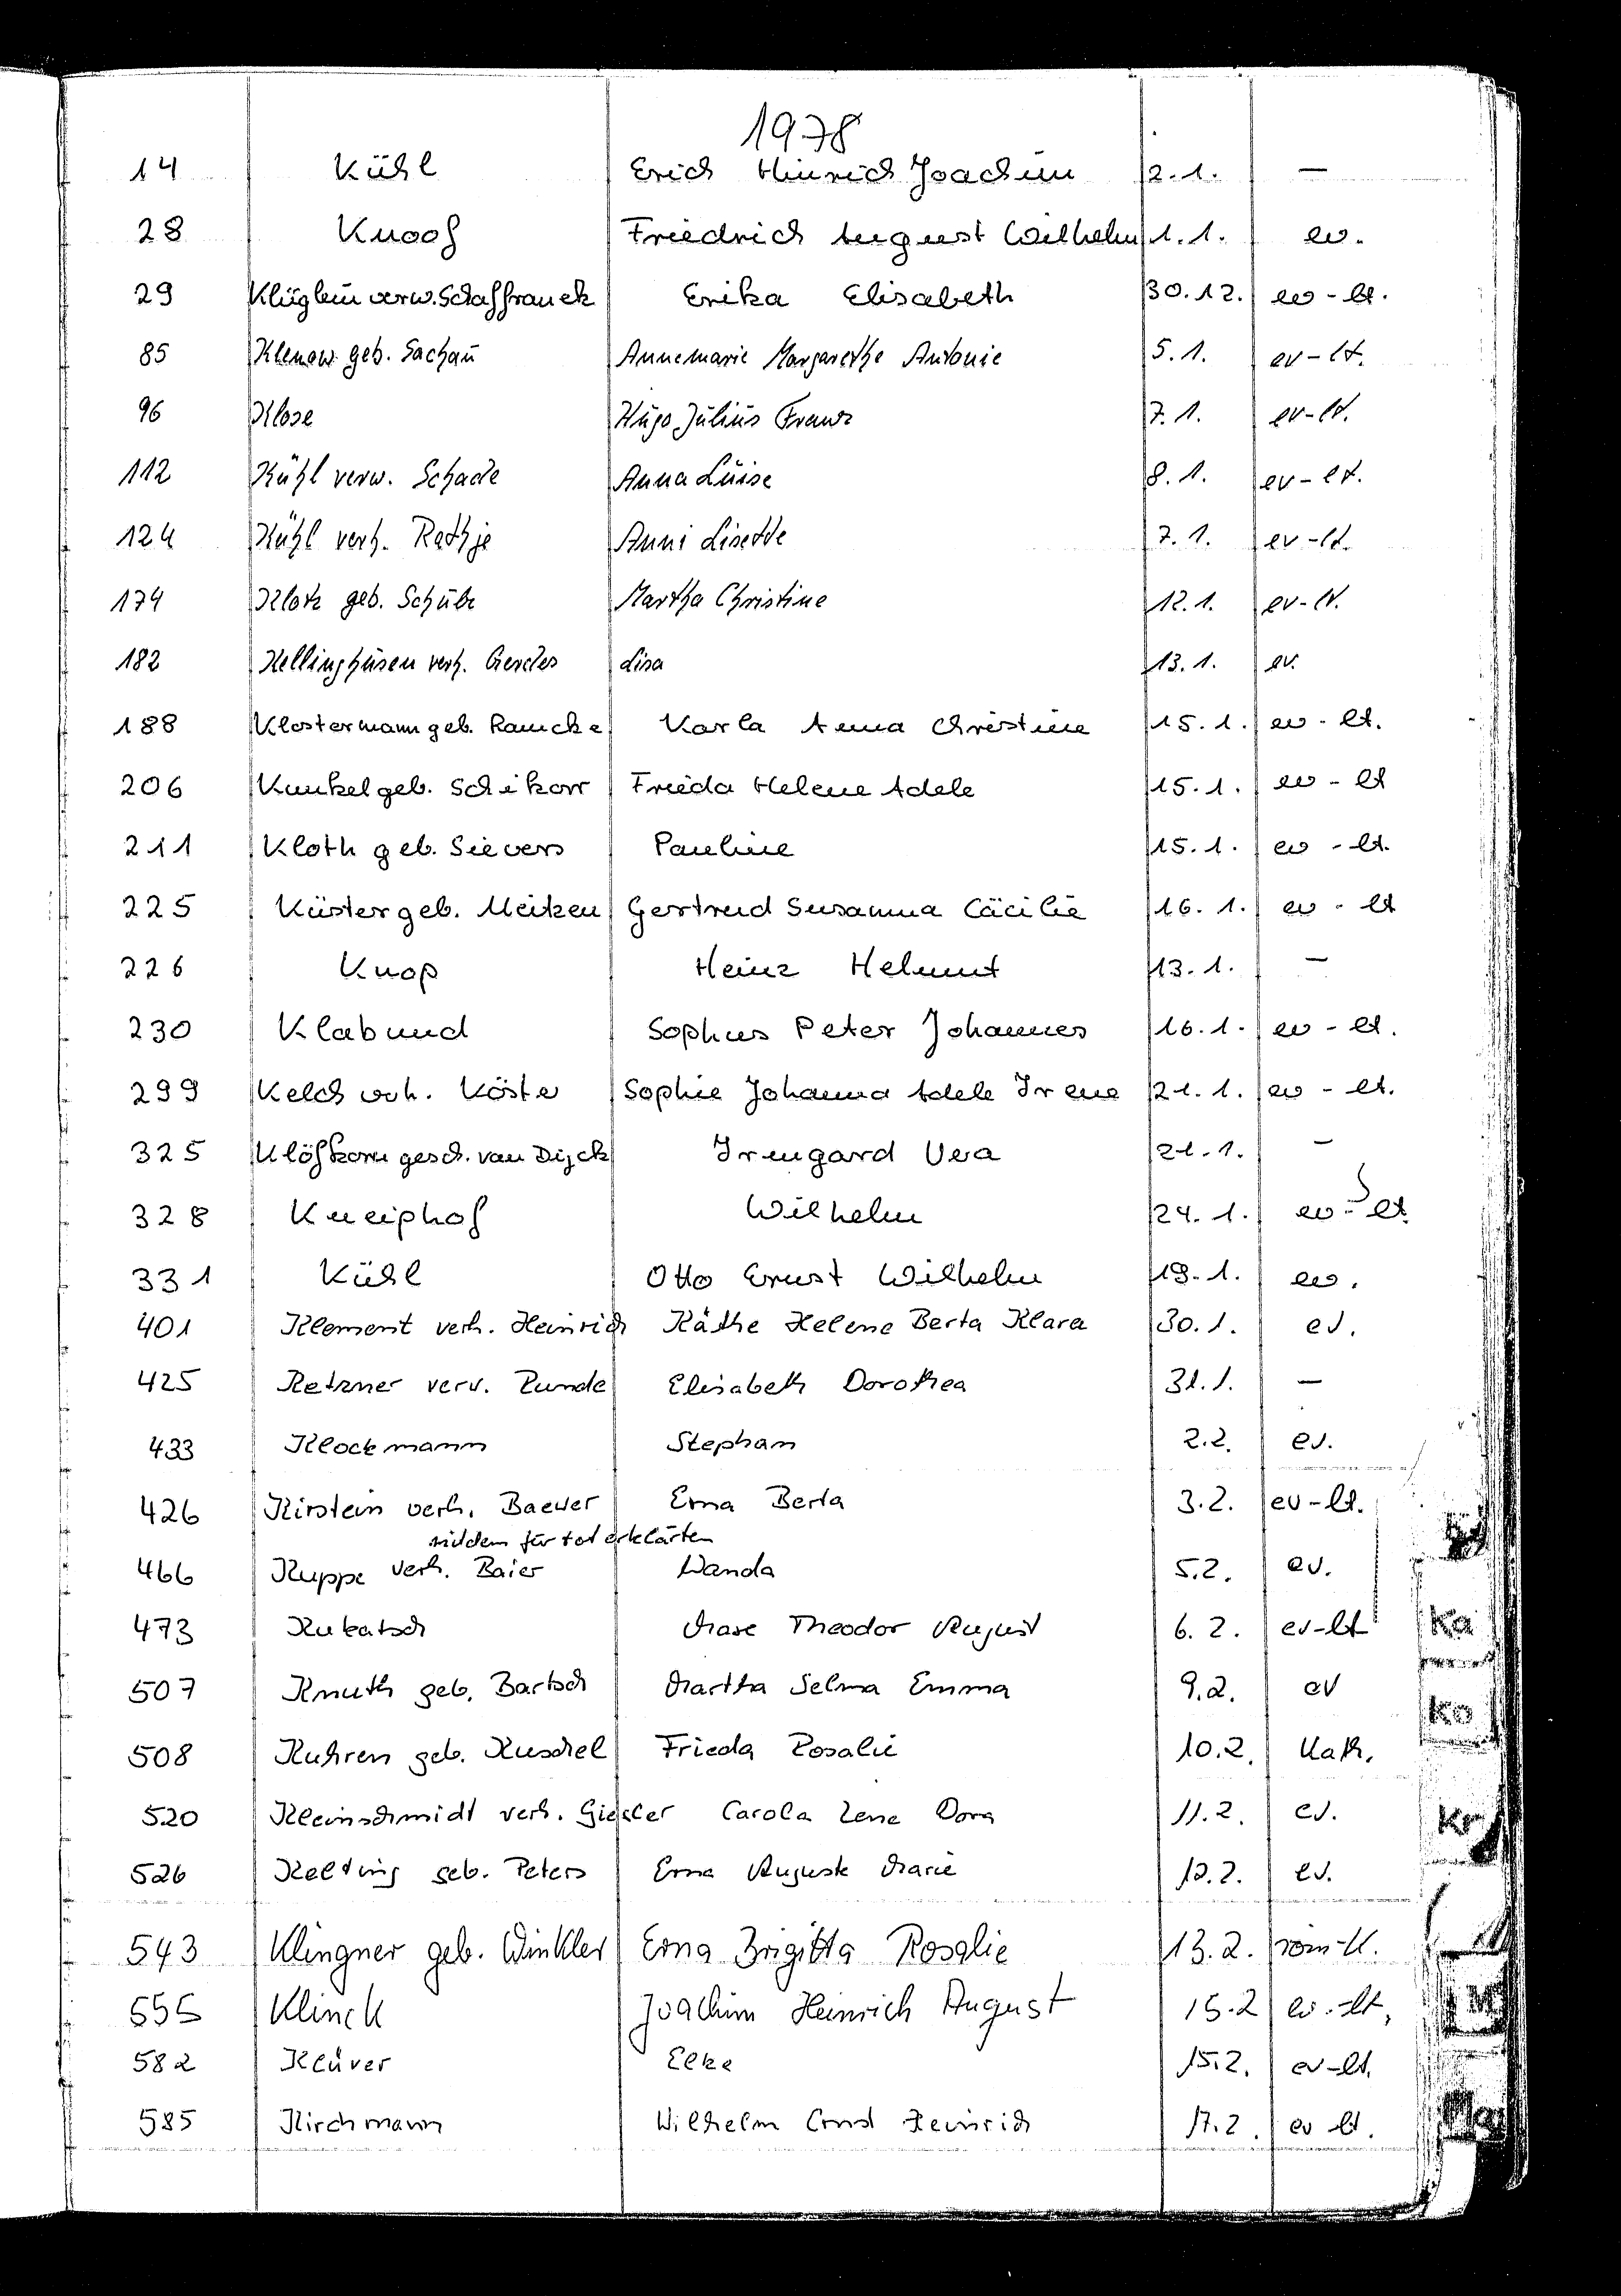 1978
14 Kühl Erich Hinrich Joachim 2.1. —
28 Knoof Friedrich August Wilhelm 1.1. ev.
29 Klüglein verw. Schaffranek Erika Elisabeth 30.12. ev-lt.
85 Klenow geb. Sachau Annemarie Margarethe Antonie 5.1. ev-lt.
96 Klose Hugo Julius Franz 7.1. ev-lt.
112 Kühl verw. Schade Anna Luise 8.1. ev-lt.
124 Kühl verh. Rathje Anni Lisette 7.1. ev-lt.
174 Klotz geb. Schulz Martha Christine 12.1. ev-lt.
182 Kellinghusen verh. Gerdes Lisa 13.1. ev.
188 Klostermann geb. Ramcke Karla Anna Christine 15.1. ev-lt.
206 Kunkel geb. Schikorr Frieda Helene Adele 15.1. ev-lt
211 Kloth geb. Sievers Pauline 15.1. ev-lt.
225 Küster geb. Meitzen Gertrud Susanna Cäcilie 16.1. ev-lt
226 Knop Heinz Helmut 13.1. —
230 Klabund Sophus Peter Johannes 16.1. ev-lt.
299 Kelch verh. Köster Sophie Johanna Adele Irene 21.1. ev-lt.
325 Klößkorn gesch. van Dijck Irmgard Vera 21.1. —
328 Kneiphof Wilhelm 24.1. ev-lt.
331 Kühl Otto Ernst Wilhelm 19.1. ev.
401 Klement verh. Heinrich Käthe Helene Berta Klara 30.1. ev.
425 Ketzner verw. Runde Elisabeth Dorothea 31.1. —
433 Klockmann Stephan 2.2. ev.
426 Kirstein verh. Baewer Erna Berta 3.2. ev-lt.
mit dem für tot erklärten
466 Kuppe verh. Baier Wanda 5.2. ev.
473 Kukatsch Max Theodor August 6.2. ev-lt
507 Knuth geb. Bartsch Martha Selma Emma 9.2. ev
508 Kuhren geb. Kuschel Frieda Rosalie 10.2. kath.
520 Kleinschmidt verh. Giesler Carola Lene Dora 11.2. ev.
526 Kelting geb. Peters Erna Auguste Marie 12.2. ev.
543 Klingner geb. Winkler Erna Brigitta Rosalie 13.2. röm-k.
555 Klinck Joachim Heinrich August 15.2 ev.-lt,
582 Klüver Elke 15.2. ev-lt.
585 Kirchmann Wilhelm Ernst Heinrich 17.2. ev lt.
Ka
Ko
Kr